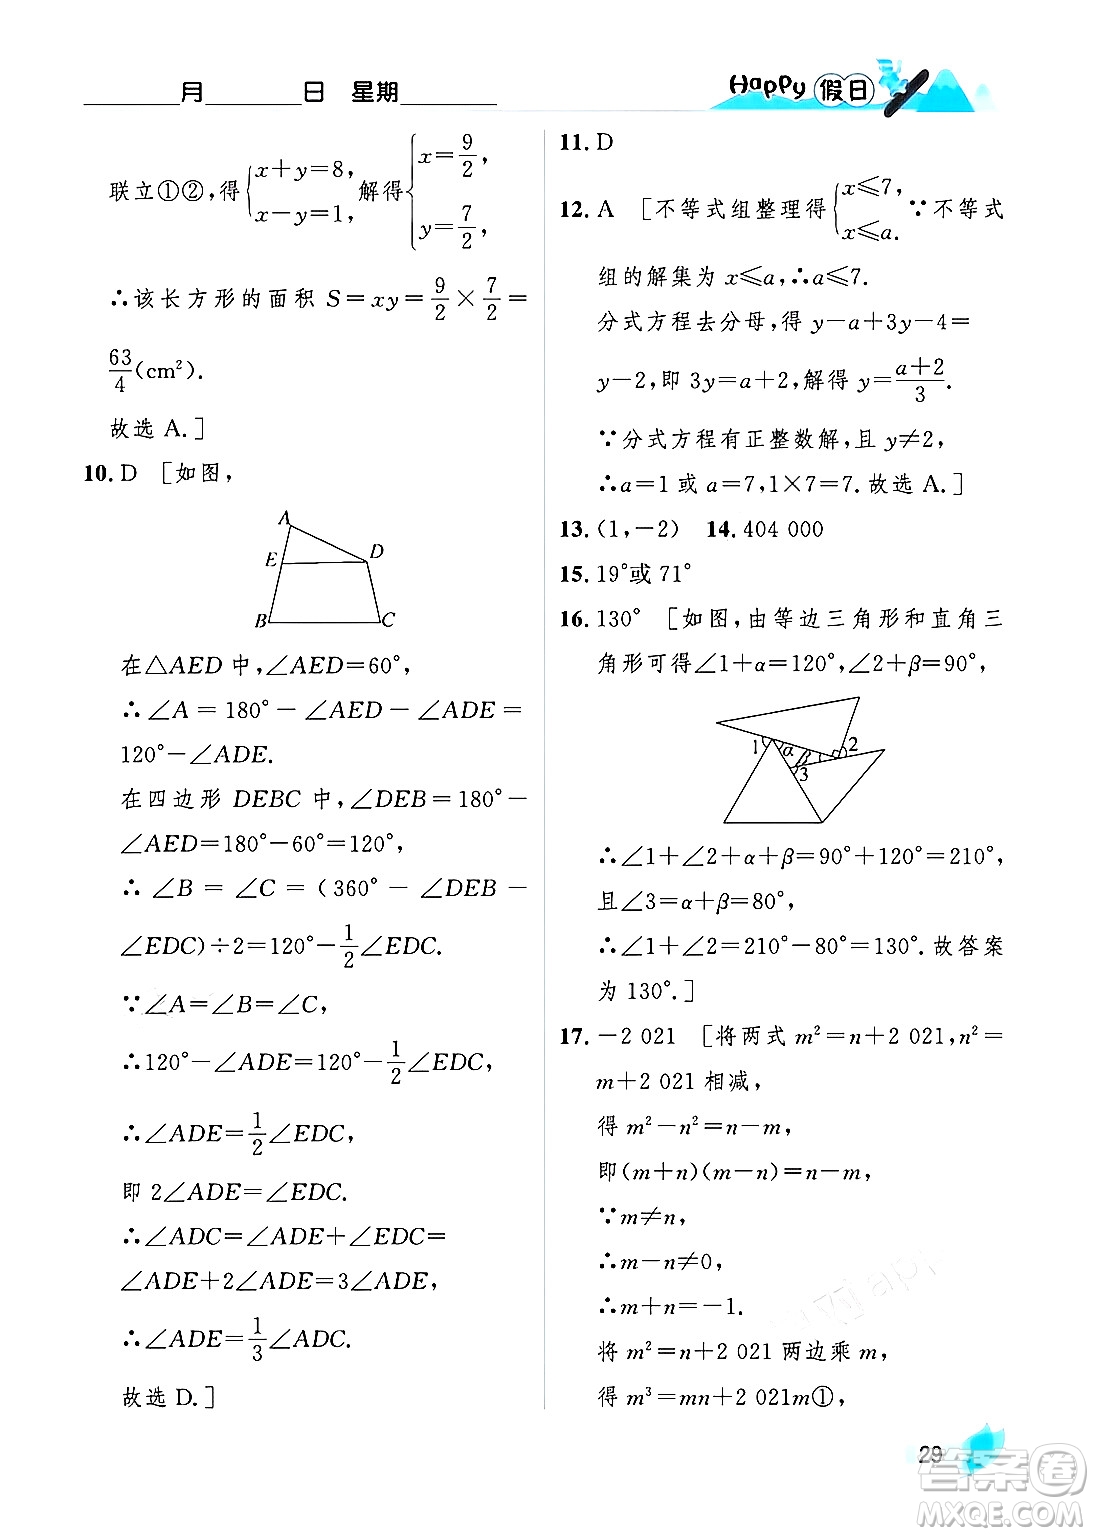 月 日 星期
Happy 假日
联立①②,得{x+y=8, x-y=1, 解得{x=9/2, y=7/2,
∴该长方形的面积 S=xy=9/2×7/2=
63/4(cm²).
故选 A.]
10.D [如图,
A
E D
B C
在△AED 中,∠AED=60°,
∴∠A=180°-∠AED-∠ADE=
120°-∠ADE.
在四边形 DEBC 中,∠DEB=180°-
∠AED=180°-60°=120°,
∴∠B=∠C=(360°-∠DEB-
∠EDC)÷2=120°-1/2∠EDC.
∵∠A=∠B=∠C,
∴120°-∠ADE=120°-1/2∠EDC,
∴∠ADE=1/2∠EDC,
即 2∠ADE=∠EDC.
∴∠ADC=∠ADE+∠EDC=
∠ADE+2∠ADE=3∠ADE,
∴∠ADE=1/3∠ADC.
故选 D.]
11.D
12.A [不等式组整理得{x≤7, x≤a. ∵不等式
组的解集为 x≤a,∴a≤7.
分式方程去分母,得 y-a+3y-4=
y-2,即 3y=a+2,解得 y=(a+2)/3.
∵分式方程有正整数解,且 y≠2,
∴a=1 或 a=7,1×7=7.故选 A.]
13.(1,-2) 14.404 000
15.19°或 71°
16.130° [如图,由等边三角形和直角三
角形可得∠1+α=120°,∠2+β=90°,
1 α β 2
3
∴∠1+∠2+α+β=90°+120°=210°,
且∠3=α+β=80°,
∴∠1+∠2=210°-80°=130°.故答案
为 130°.]
17.-2 021 [将两式 m²=n+2 021,n²=
m+2 021 相减,
得 m²-n²=n-m,
即(m+n)(m-n)=n-m,
∵m≠n,
∴m-n≠0,
∴m+n=-1.
将 m²=n+2 021 两边乘 m,
得 m³=mn+2 021m①,
29
答案圈
MXQE.COM